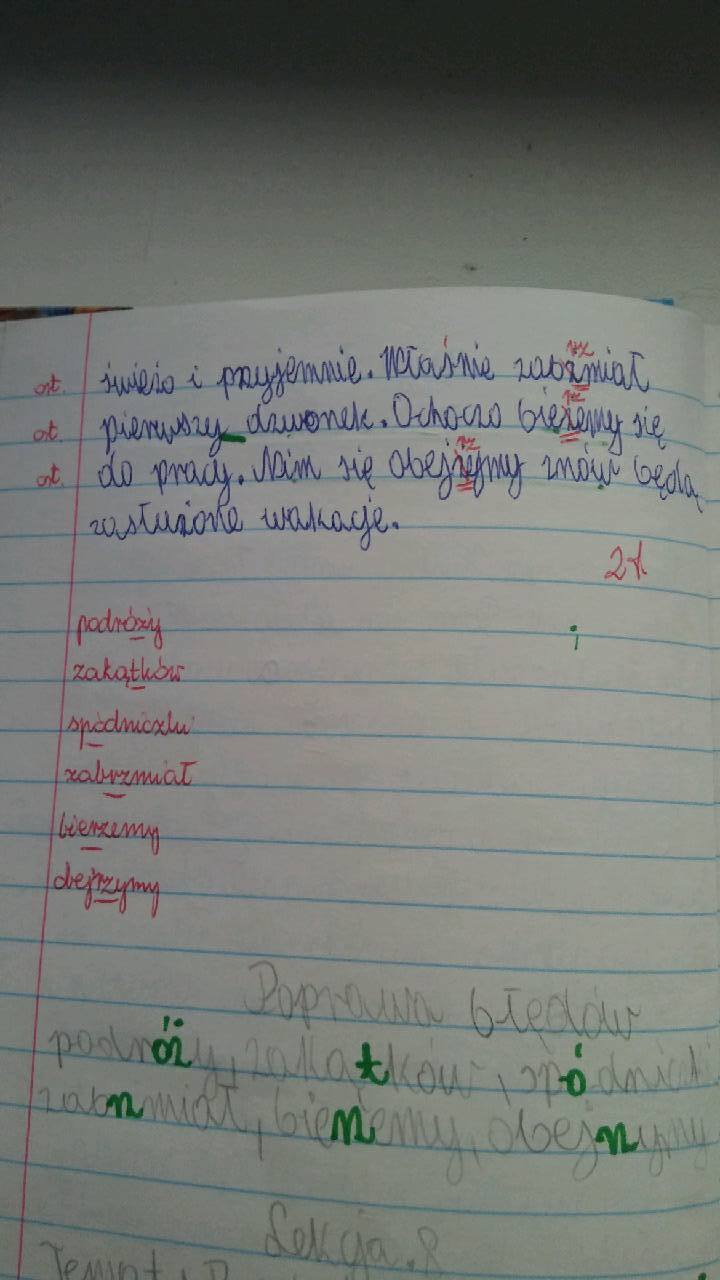 ort. świeżo i przyjemnie. Właśnie zabżmiał rz
ort. pierwszy dzwonek. Ochoczo bieżemy się rz
ort. do pracy. Nim się obejżymy znów będą rz
zasłużone wakacje.
2+
podróży
zakątków
spódniczki
zabrzmiał
bierzemy
obejrzymy
Poprawa błędów
podróży, zakątków, spódnicz
zabrzmiał, bierzemy, obejrzymy
Lekcja. 8
Temat: